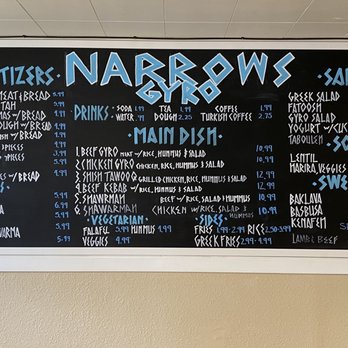 NARROWS
GYRO
TIZERS
MEAT & BREAD 5.99
TAH
MAS W/ BREAD
OUGH W/ BREAD
ISH W/ BREAD
PIECES 3.99
PIECES
W/ BREAD 4.99
S 5.99
5.99
5.99
ARMA 5.99
5.99
DRINKS · SODA 1.99 TEA 1.99 COFFEE 1.99
WATER .99 DOUGH 2.25 TURKISH COFFEE 2.75
· MAIN DISH ·
1. BEEF GYRO MEAT W/ RICE, HUMMUS & SALAD 12.99
2. CHICKEN GYRO CHICKEN, RICE, HUMMUS & SALAD 10.99
3. SHISH TAWOOQ GRILLED CHICKEN, RICE, HUMMUS & SALAD 12.99
4. BEEF KEBAB W/ RICE, HUMMUS & SALAD 12.99
5. SHAWRMAH BEEF W/ RICE, HUMMUS & SALAD 12.99
6. SHAWARMAH CHICKEN W/ RICE, SALAD & HUMMUS 10.99
· VEGETARIAN ·
FALAFEL 8.99 HUMMUS 4.99
VEGGIES 4.99
· SIDES ·
FRIES 1.99-2.99 RICE 2.50-3.99
GREEK FRIES 2.99-4.99
SA
GREEK SALAD
FATOOSH
GYRO SALAD
YOGURT W/ CUC
TABOULEH
SO
LENTIL
HARIRA, VEGGIES
SWE
BAKLAVA
BASBUSA
KENAFEH
LAMB & BEEF